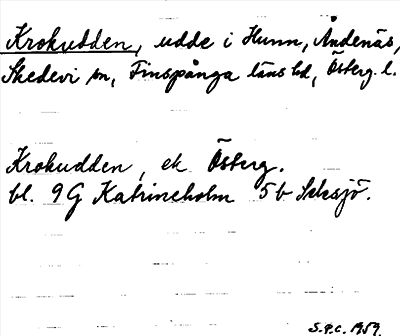 Krokudden, udde i Hunn, Åndenäs,
Skedevi sn, Finspånga läns hd, Österg. l.
Krokudden, ek Österg.
bl. 9 G Katrineholm 5 b
S.g.c. 1959.